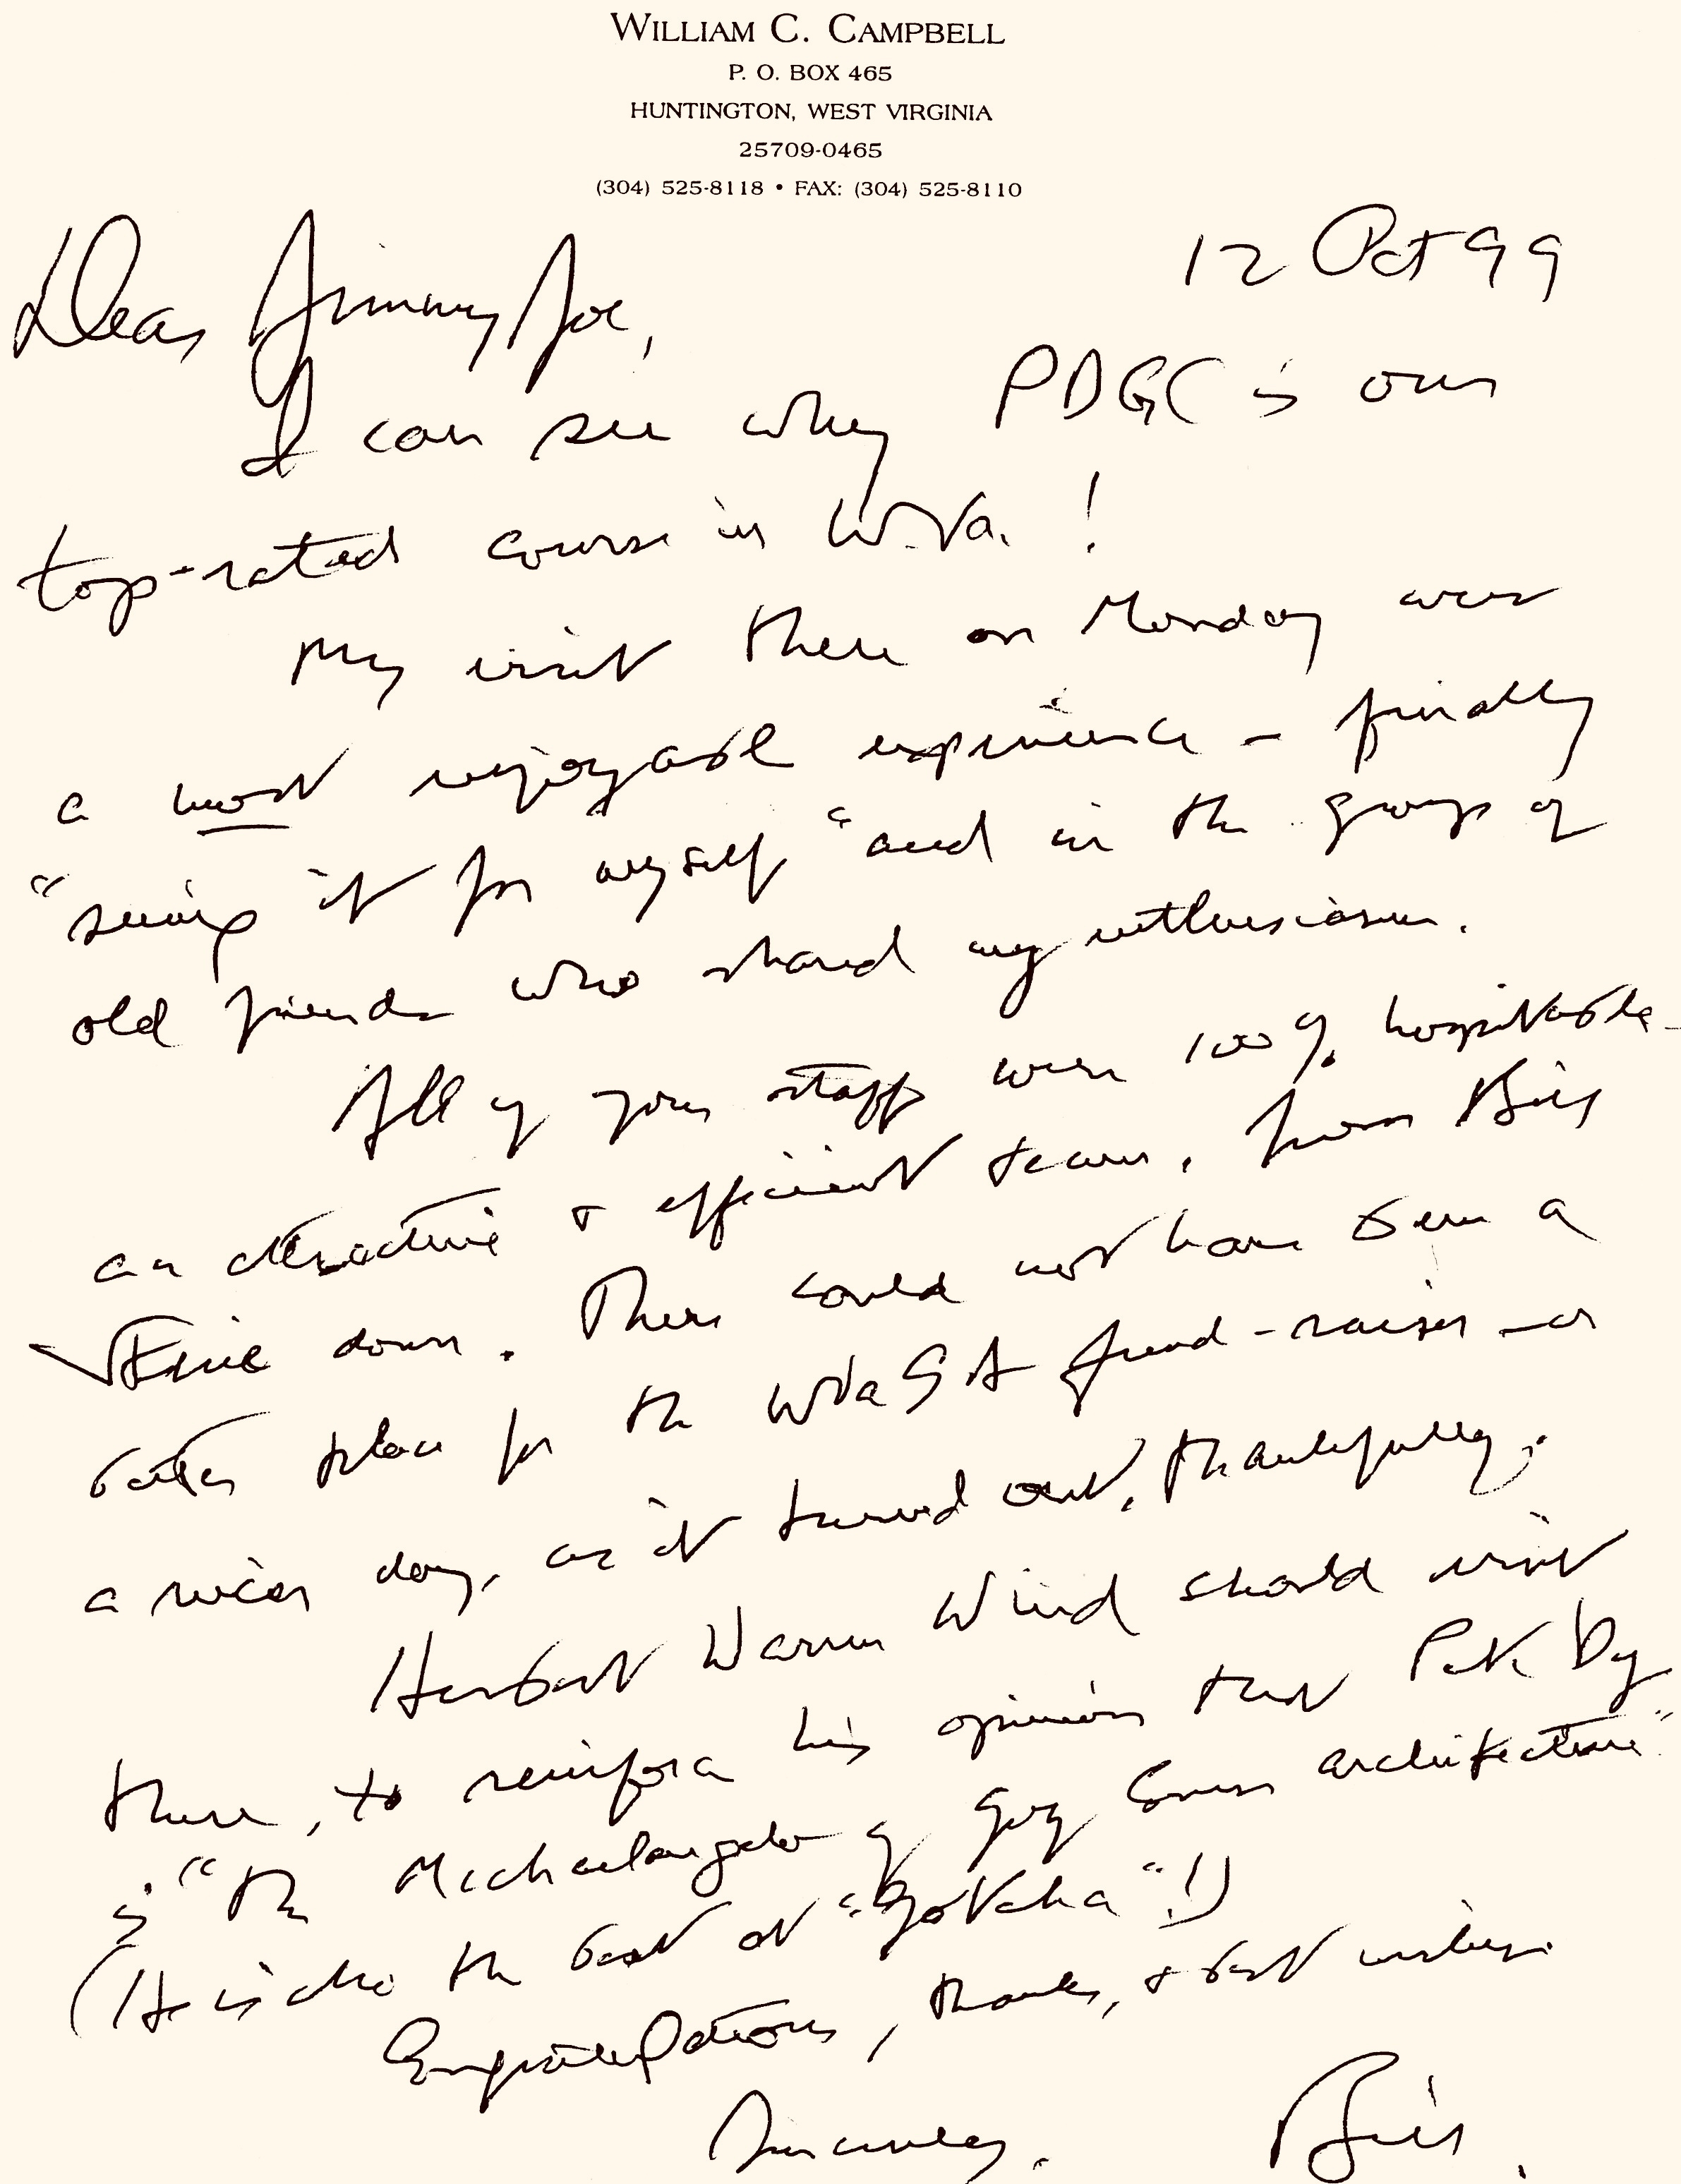 WILLIAM C. CAMPBELL
P. O. BOX 465
HUNTINGTON, WEST VIRGINIA
25709-0465
(304) 525-8118 • FAX: (304) 525-8110
12 Oct 99
Dear Jimmy Joe,
I can see why PDGC is our
top-rated course in W.Va. !
My visit there on Monday was
a most enjoyable experience – finally
"seeing it for myself" and in the group of
old friends who shared my enthusiasm.
All of your staff were 100% hospitable –
an attractive & efficient team, from Bill
down. There could not have been a
better place for the WVaGA fund-raiser – or
a nicer day, as it turned out, thankfully.
Herbert Warren Wind should visit
there, to reinforce his opinion that Pete Dye
is "the Michaelangelo of golf course architecture"
(He is also the best at "gotcha"!)
Congratulations, thanks, & best wishes.
Sincerely, Bill.